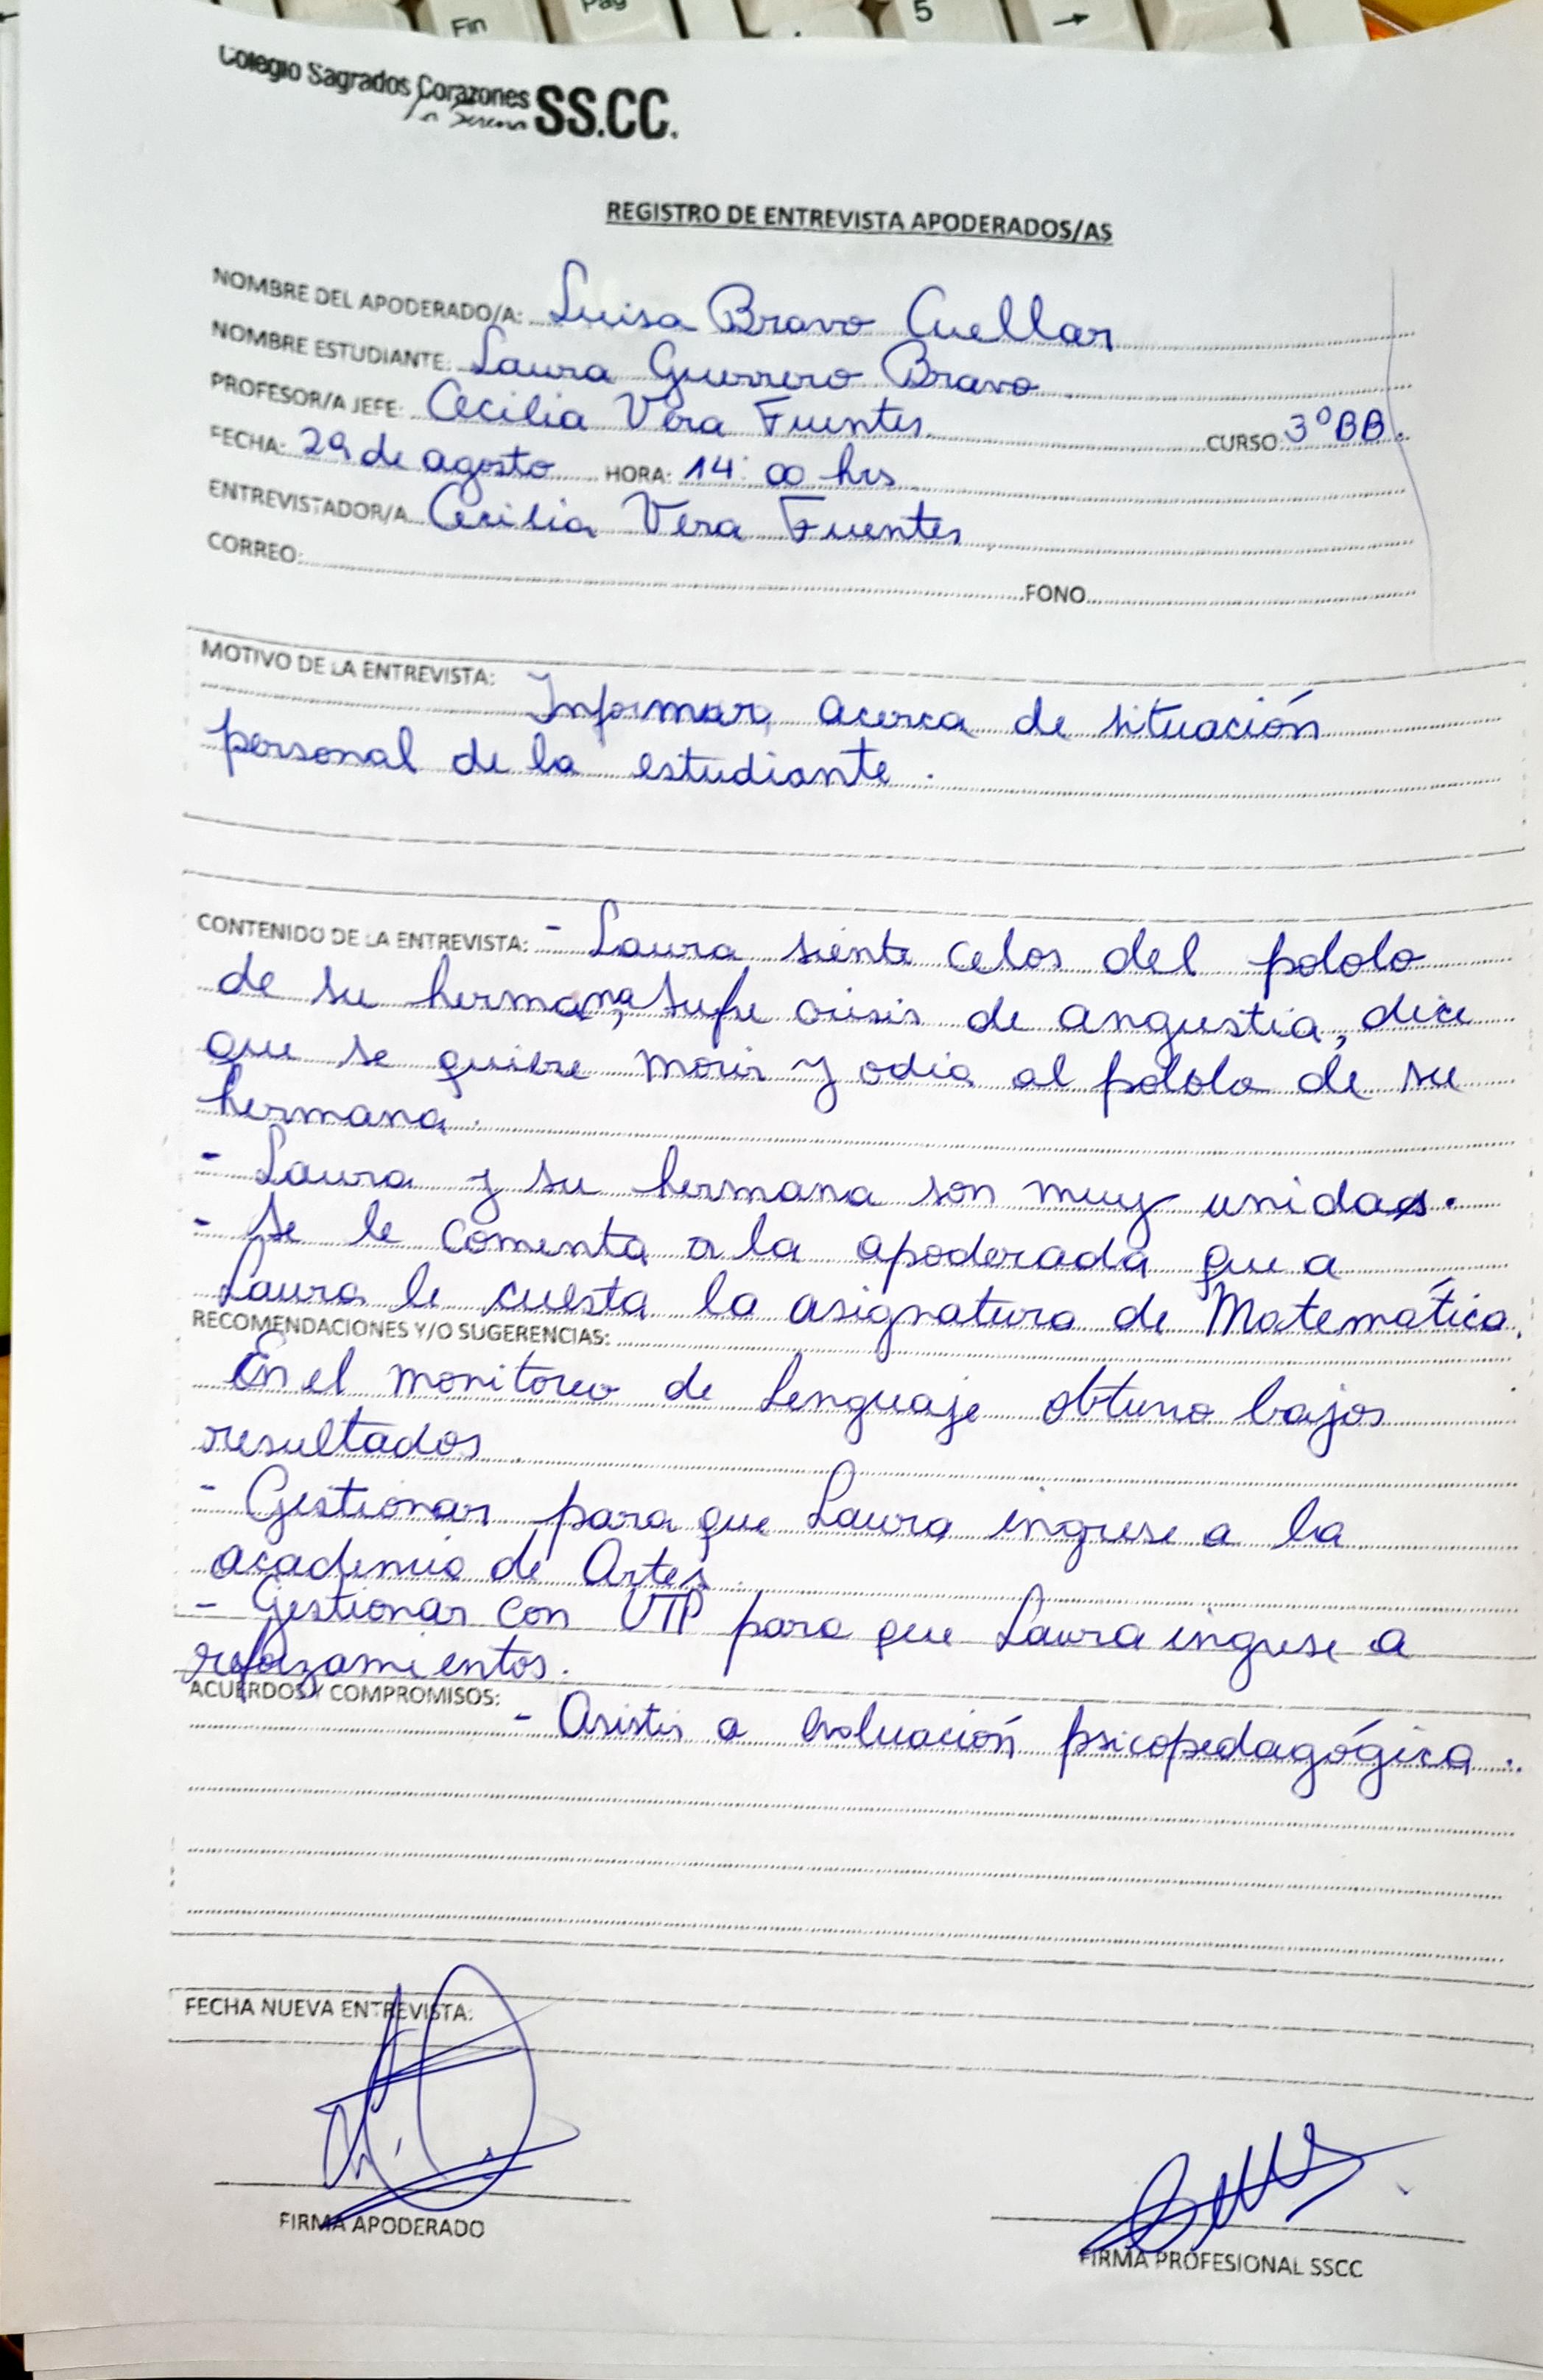 Fin
Pag
5
→
Colegio Sagrados Corazones SS.CC.
La Serena
REGISTRO DE ENTREVISTA APODERADOS/AS
NOMBRE DEL APODERADO/A: Luisa Bravo Cuellar
NOMBRE ESTUDIANTE: Laura Guerrero Bravo
PROFESOR/A JEFE: Cecilia Vera Fuentes CURSO 3°BB.
FECHA: 29 de agosto HORA: 14:00 hrs
ENTREVISTADOR/A Cecilia Vera Fuentes
CORREO: FONO
MOTIVO DE LA ENTREVISTA: Informar acerca de situación
personal de la estudiante.
CONTENIDO DE LA ENTREVISTA: - Laura siente celos del pololo
de su hermana, sufre crisis de angustia, dice
que se quiere morir y odia al pololo de su
hermana.
- Laura y su hermana son muy unidas.
- Se le comenta a la apoderada que a
Laura le cuesta la asignatura de Matemática.
RECOMENDACIONES Y/O SUGERENCIAS:
En el monitoreo de Lenguaje obtuvo bajos
resultados
- Gestionar para que Laura ingrese a la
academia de Artes.
- Gestionar con UTP para que Laura ingrese a
reforzamientos.
ACUERDOS Y COMPROMISOS: - Asistir a evaluación psicopedagógica.
FECHA NUEVA ENTREVISTA:
FIRMA APODERADO
FIRMA PROFESIONAL SSCC